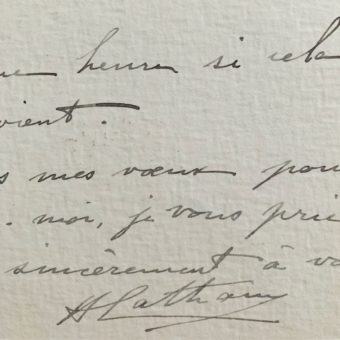 ue heure si cela
vient.
s mes vœux pou
. moi, je vous prie
sincèrement à vo
HLatham